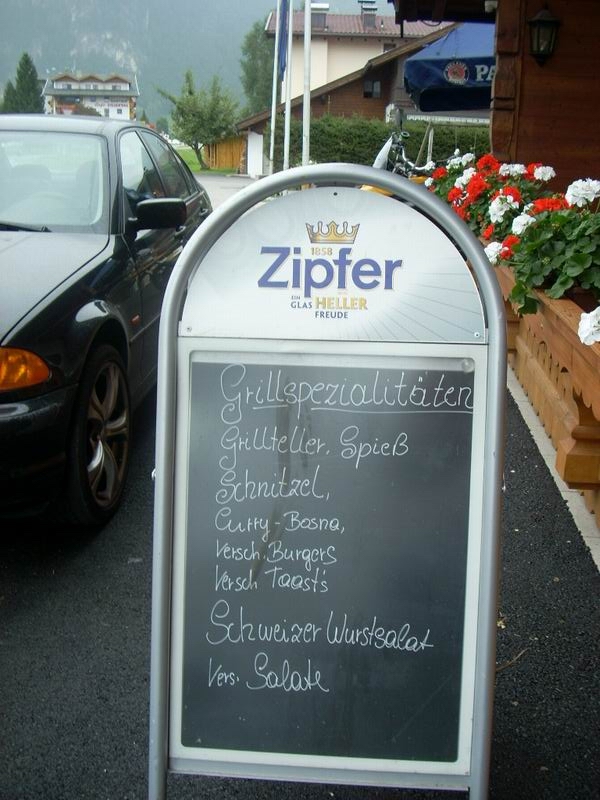 PA
1858
Zipfer
EIN
GLAS HELLER
FREUDE
Grillspezialitäten
Grillteller, Spieß
Schnitzel,
Curry-Bosna,
Versch. Burgers
Versch Toast's
Schweizer Wurstsalat
Vers. Salate